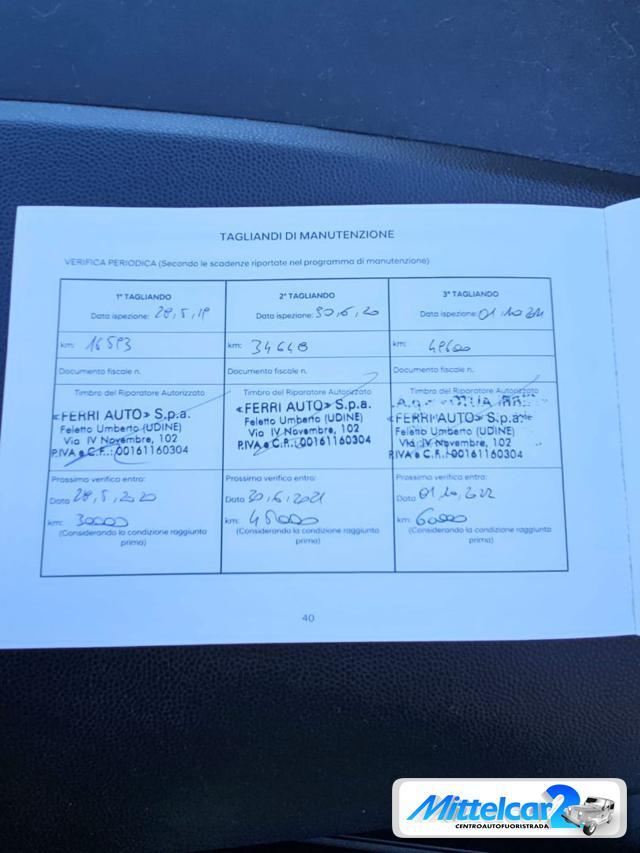 TAGLIANDI DI MANUTENZIONE
VERIFICA PERIODICA (Secondo le scadenze riportate nel programma di manutenzione)
1° TAGLIANDO
Data ispezione: 28,5,19
km: 16593
Documento fiscale n.
Timbro del Riparatore Autorizzato
«FERRI AUTO» S.p.a.
Feletto Umberto (UDINE)
Via IV Novembre, 102
P.IVA e C.F.: 00161160304
Prossima verifica entro:
Data 28,5,2020
km: 30000
(Considerando la condizione raggiunta
prima)
2° TAGLIANDO
Data ispezione: 30,6,20
km: 34648
Documento fiscale n.
Timbro del Riparatore Autorizzato
«FERRI AUTO» S.p.a.
Feletto Umberto (UDINE)
Via IV Novembre, 102
P.IVA e C.F.: 00161160304
Prossima verifica entro:
Data 30,6,2021
km: 45000
(Considerando la condizione raggiunta
prima)
3° TAGLIANDO
Data ispezione: 01.10.21
km: 49600
Documento fiscale n.
Timbro del Riparatore Autorizzato
«FERRI AUTO» S.p.a.
Feletto Umberto (UDINE)
Via IV Novembre, 102
P.IVA e C.F.: 00161160304
Prossima verifica entro:
Data 01,10,2022
km: 60000
(Considerando la condizione raggiunta
prima)
40
Mittelcar2
CENTROAUTOFUORISTRADA